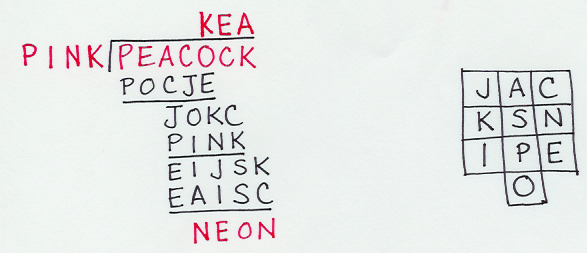 KEA
PINK PEACOCK
POCJE
JOKC
PINK
EIJSK
EAISC
NEON
J A C
K S N
I P E
O